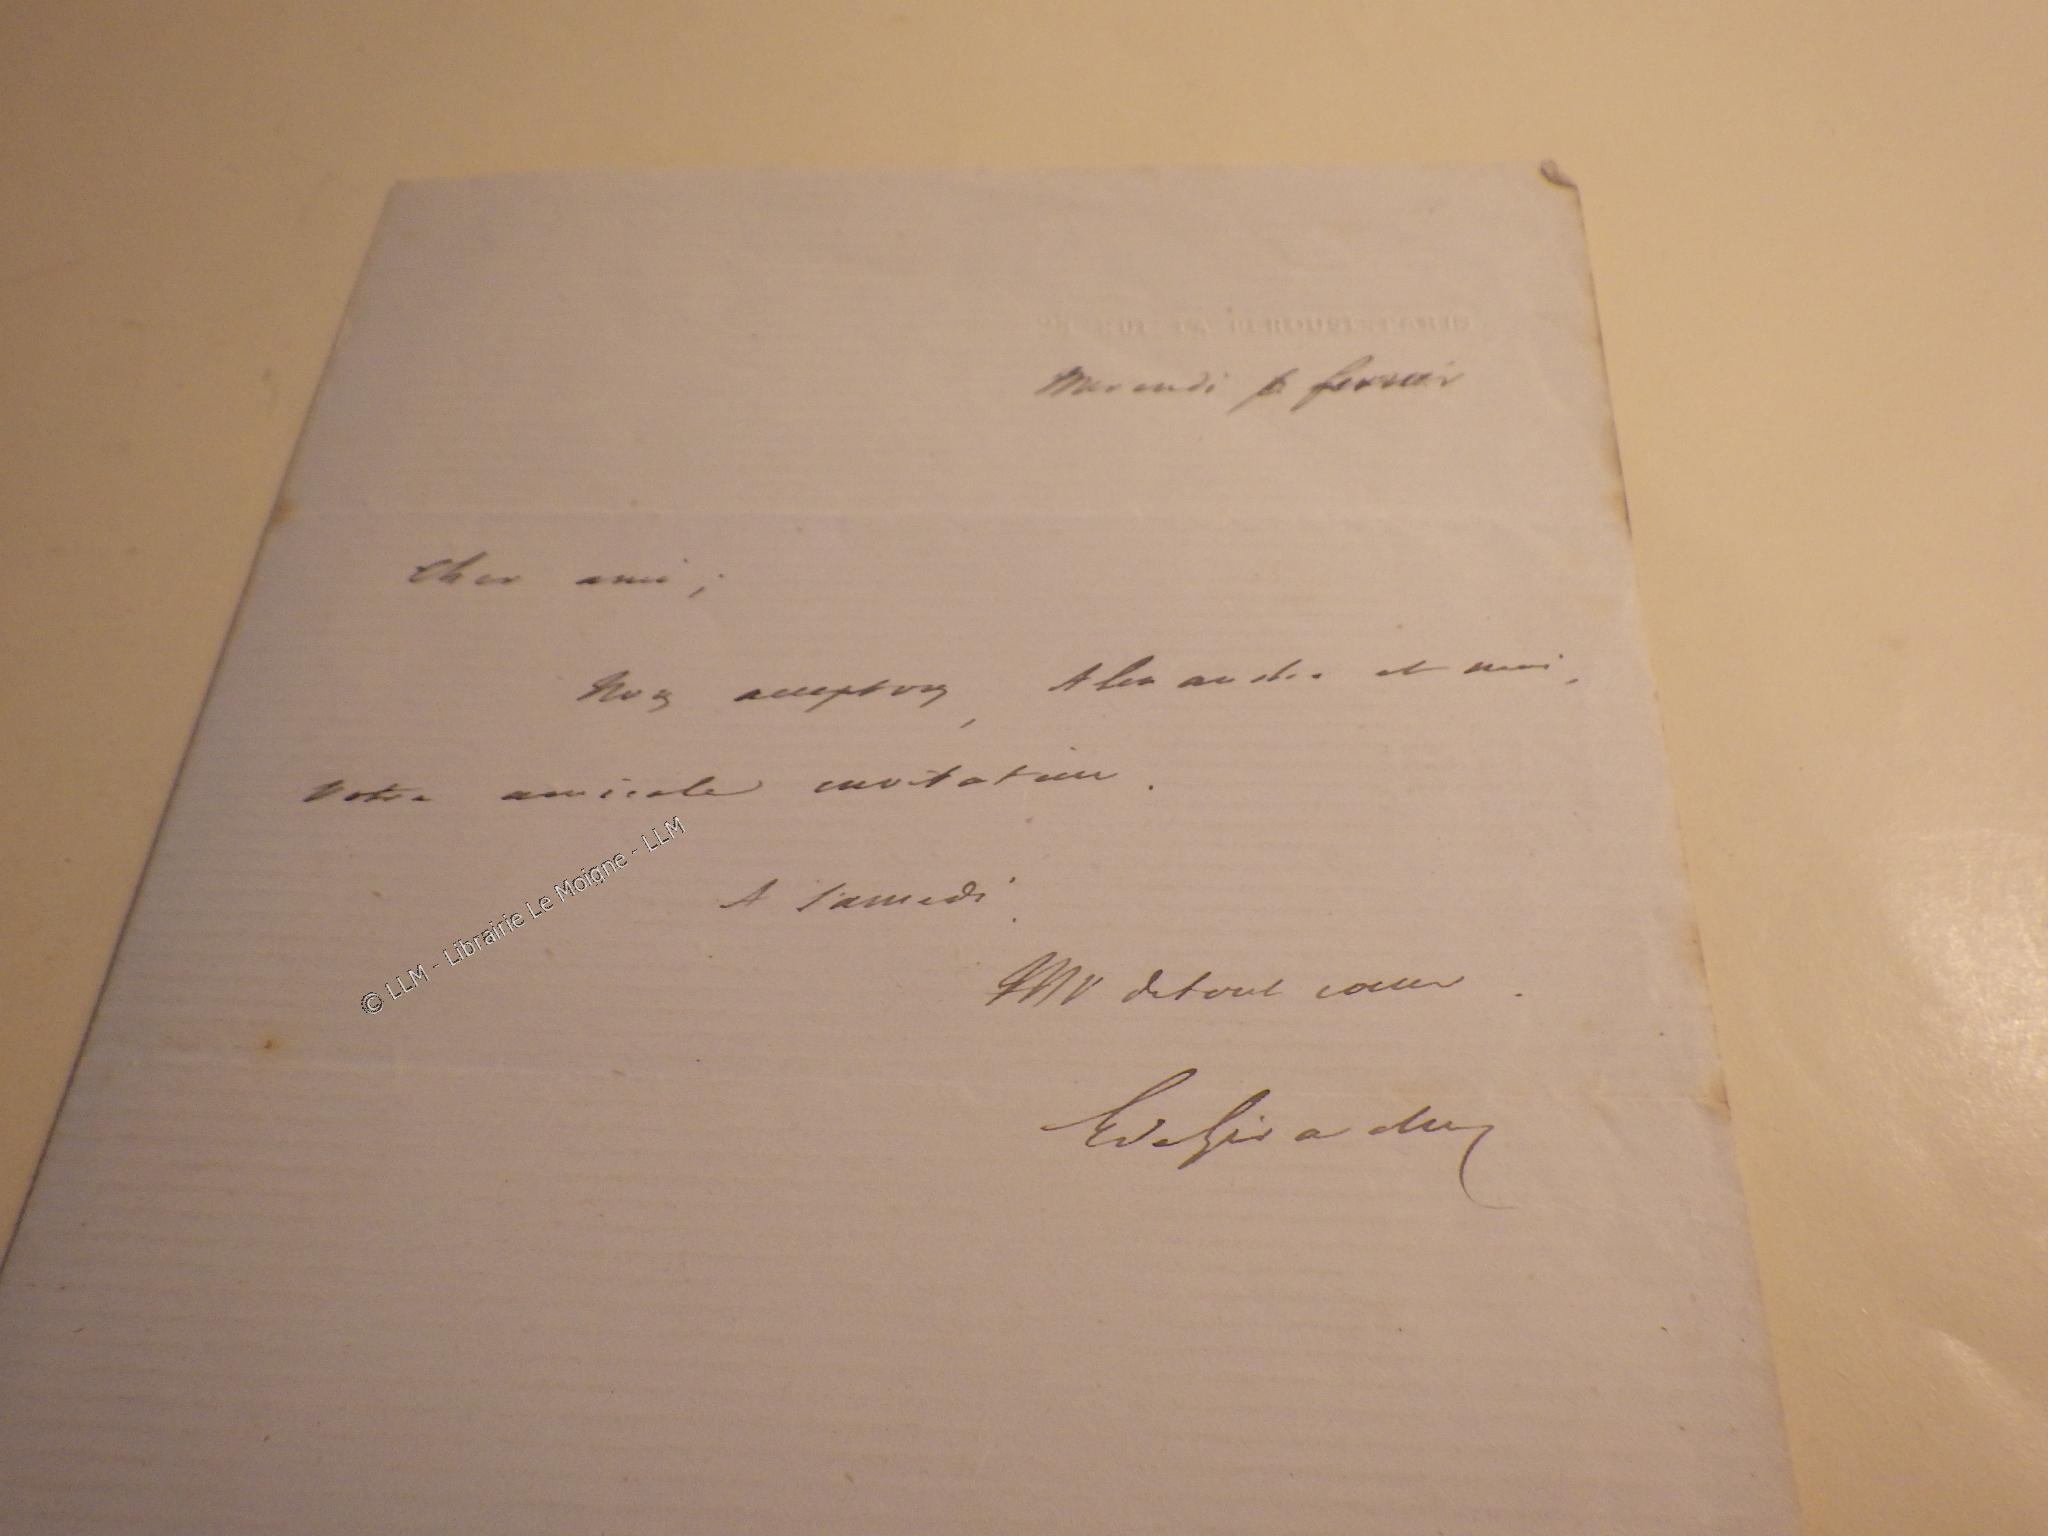 RUE LA PEROUSE. PARIS.
Mercredi 6 fevrier
Cher ami,
Nous acceptons, Alexandre et moi,
votre amicale invitation.
A Samedi.
de tout coeur.
E de Girardin
© LLM - Librairie Le Moigne - LLM